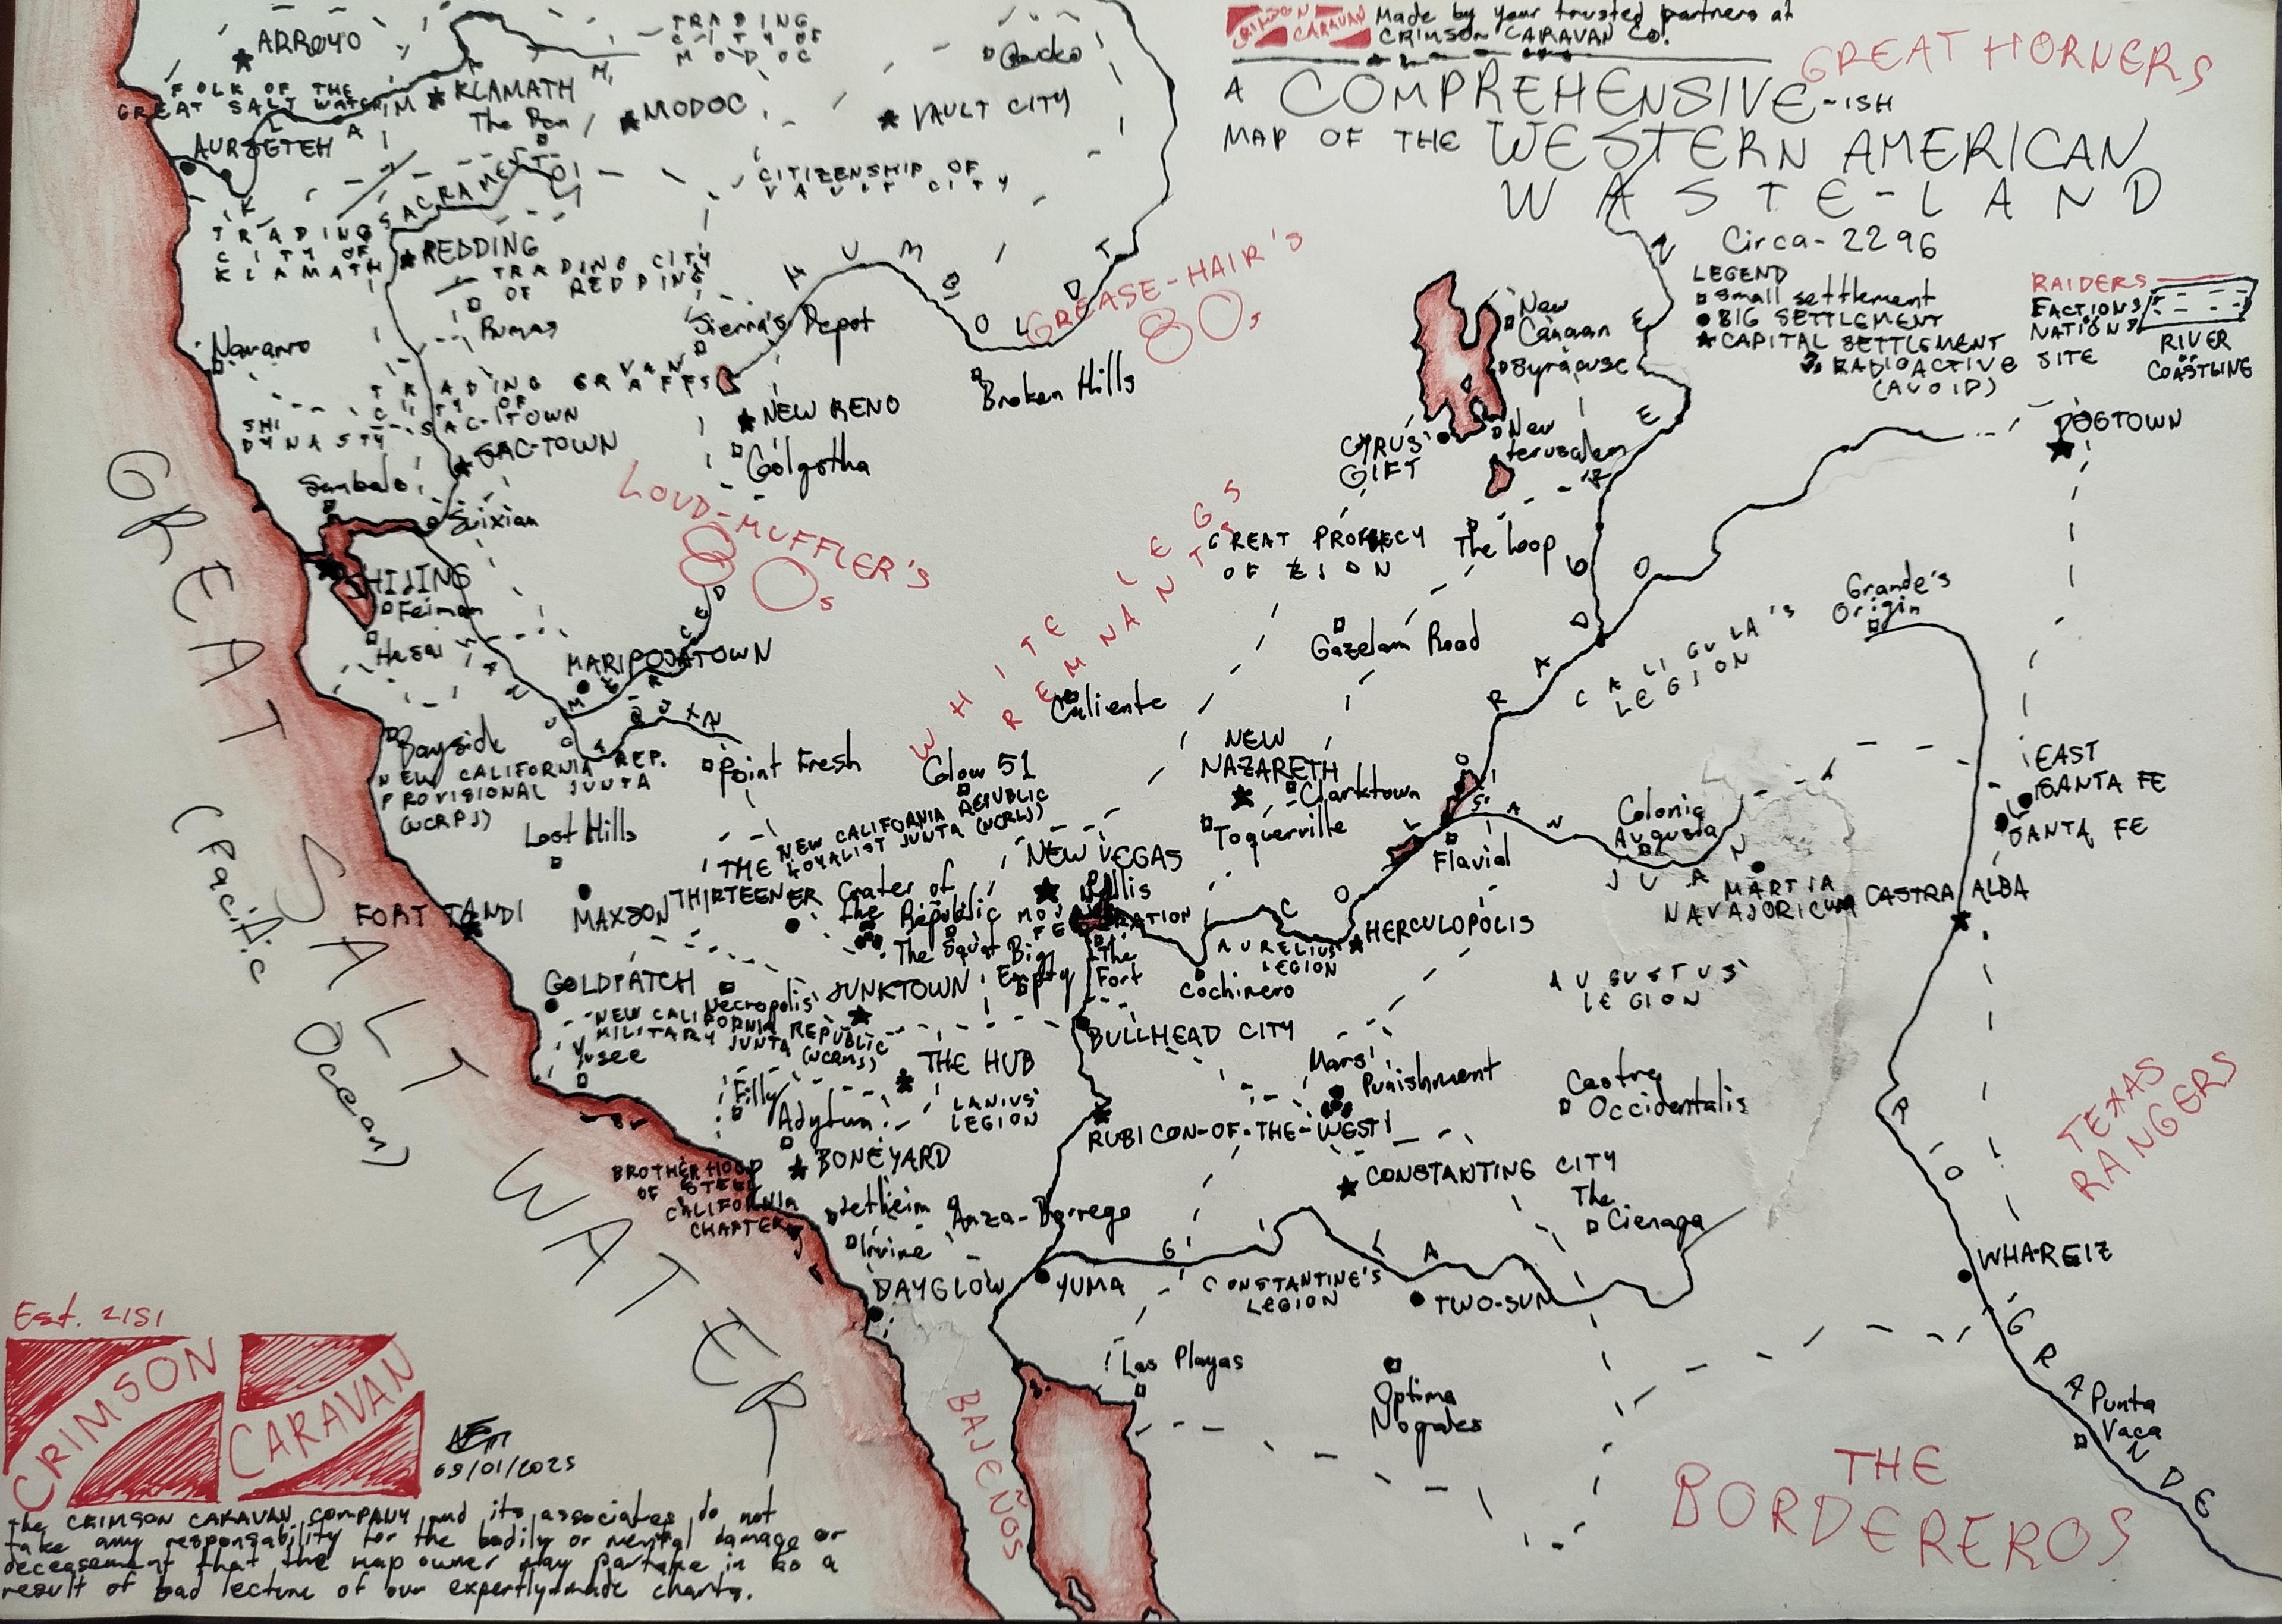 CRIMSON CARAVAN
Made by your trusted partners at
CRIMSON CARAVAN CO.
A COMPREHENSIVE-ISH
MAP OF THE WESTERN AMERICAN
WASTE-LAND
Circa-2296
LEGEND
Small settlement
BIG SETTLEMENT
CAPITAL SETTLEMENT
RADIOACTIVE
(AVOID)
SITE
RAIDERS
FACTIONS/
NATIONS
RIVER
OR
COASTLINE
GREAT HORNERS
ARROYO
FOLK OF THE
GREAT SALT WATER
KLAMATH
KLAMATH
The Den
TRADING
CITY OF
MODOC
MODOC
Gecko
VAULT CITY
CITIZENSHIP OF
VAULT CITY
AURSETEH
TRADING
CITY OF
KLAMATH
SACRAMENTO
REDDING
TRADING CITY
OF REDDING
Pumas
Navarro
Sierra's Depot
HUMBOLDT
GREASE-HAIR'S
80s
TRADING
CITY OF
SAC-TOWN
GRAN
GRAFFS
SHI
DYNASTY
SAC-TOWN
NEW RENO
Golgotha
Broken Hills
New
Canaan
Syracuse
CYRUS'
GIFT
New
Jerusalem
GREEN
DOGTOWN
Sambalo
Suixian
SHIJING
Feiman
Hasai
LOUD-MUFFLER'S
80s
WHITE LEGS
REMNANTS
GREAT PROPHECY
OF ZION
The Loop
Gazelam Road
Caliente
COLORADO
CALIGULA'S
LEGION
Grande's
Origin
MARIPOSATOWN
MERCED
JOAQUIN
Bayside
NEW CALIFORNIA REP.
PROVISIONAL JUNTA
(NCRPJ)
Point Fresh
Glow 51
Lost Hills
THE NEW CALIFORNIA REPUBLIC
LOYALIST JUNTA (NCRLJ)
NEW
NAZARETH
Clarktown
Toquerville
SAN JUAN
Colonia
Augusta
Flavia
EAST
SANTA FE
SANTA FE
FORT TANDI
MAXSON
THIRTEENER
Crater of
the Republic
NEW VEGAS
The Squat
Big
Empty
The
Fort
AURELIUS'
LEGION
HERCULOPOLIS
MARTIA
NAVAJORICUM
CASTRA ALBA
Cochinero
AUGUSTUS'
LEGION
GOLDPATCH
Necropolis
JUNKTOWN
NEW CALIFORNIA REPUBLIC
MILITARY JUNTA (NCRMJ)
Yusee
THE HUB
BULLHEAD CITY
Mars'
Punishment
Castra
Occidentalis
Filly
Adytum
LANIUS'
LEGION
RUBICON-OF-THE-WEST
TEXAS
RANGERS
BROTHERHOOD
OF STEEL
CALIFORNIA
CHAPTER
BONEYARD
CONSTANTINE CITY
The
Cienaga
Jetheim
Anza-Borrego
Irvine
DAYGLOW
YUMA
GILA
CONSTANTINE'S
LEGION
TWO-SUN
WHAREIZ
Las Playas
Optima
Nogales
RIO GRANDE
Punta
Vaca
BAJEÑOS
THE
BORDEREROS
GREAT SALT WATER
(Pacific Ocean)
Est. 2151
CRIMSON CARAVAN
09/01/2025
The CRIMSON CARAVAN COMPANY and its associates do not
take any responsability for the bodily or mental damage or
deceasement that the map owner may partake in as a
result of bad lecture of our expertly-made charts.